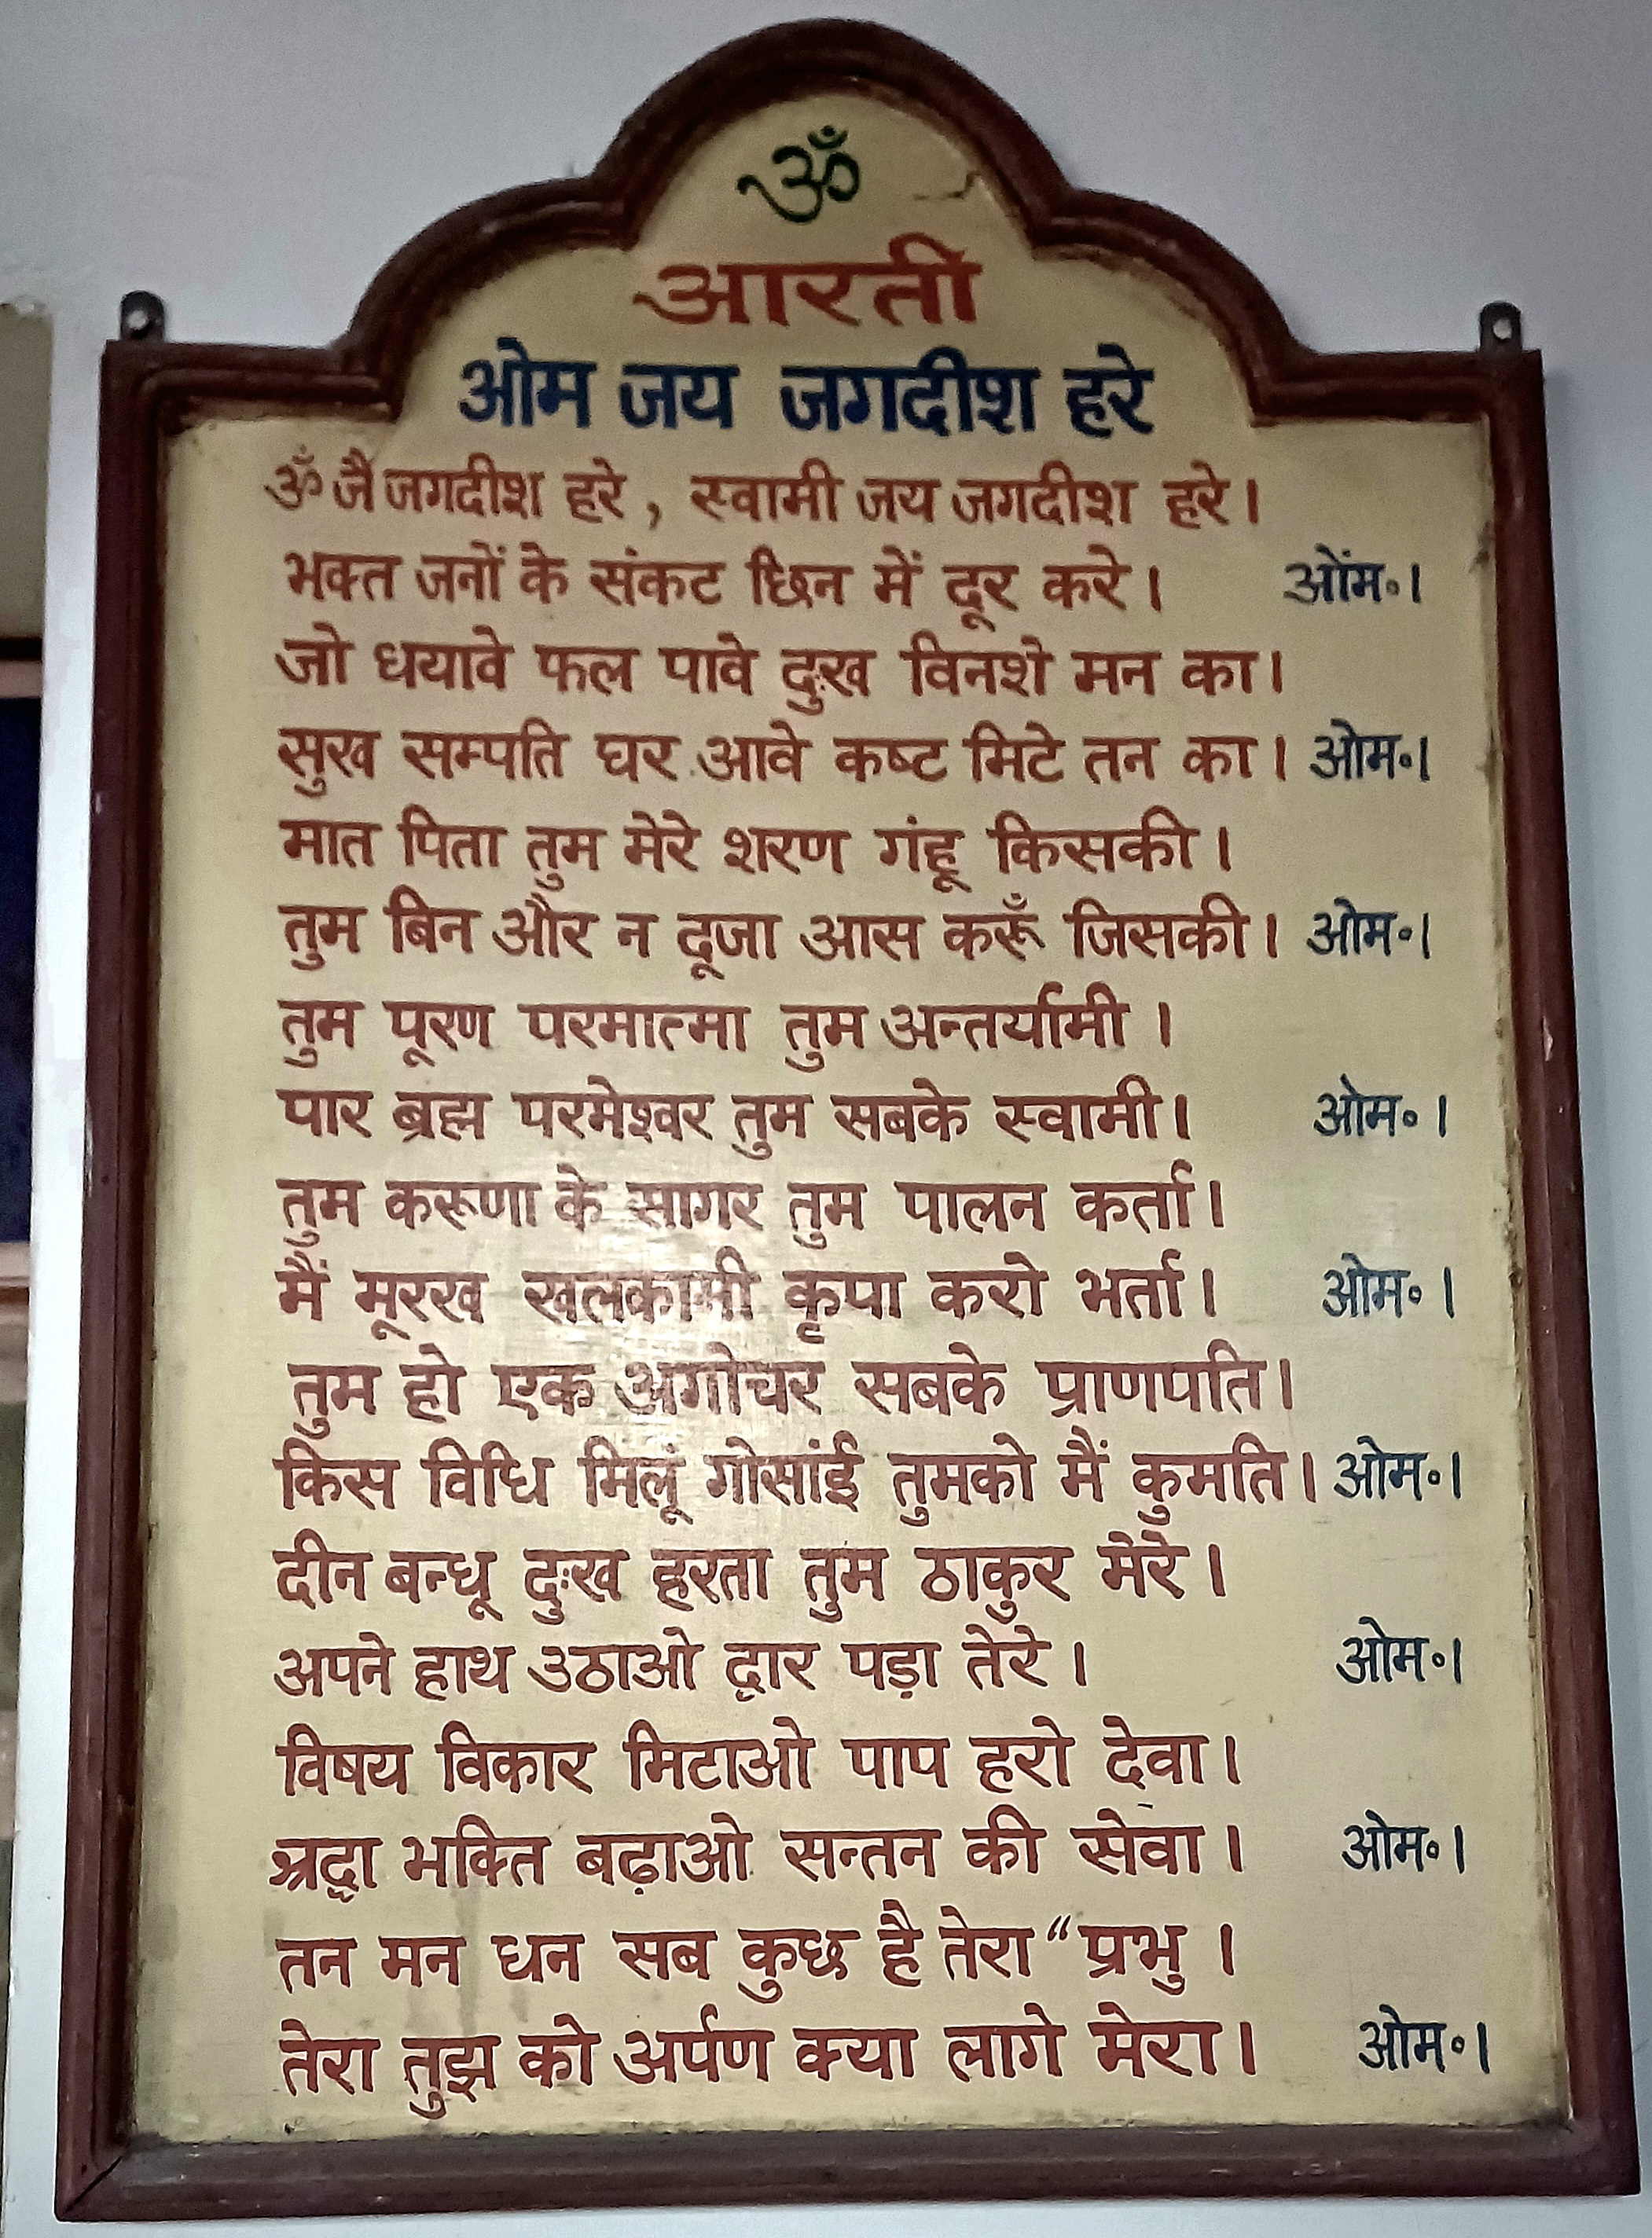 ॐ
आरती
ओम जय जगदीश हरे
ॐ जै जगदीश हरे, स्वामी जय जगदीश हरे।
भक्त जनों के संकट छिन में दूर करे। ओंम॰।
जो धयावे फल पावे दुःख विनशे मन का।
सुख सम्पति घर आवे कष्ट मिटे तन का। ओम॰।
मात पिता तुम मेरे शरण गंहू किसकी।
तुम बिन और न दूजा आस करूँ जिसकी। ओम॰।
तुम पूरण परमात्मा तुम अन्तर्यामी।
पार ब्रह्म परमेश्वर तुम सबके स्वामी। ओम॰।
तुम करूणा के सागर तुम पालन कर्ता।
मैं मूरख खलकामी कृपा करो भर्ता। ओम॰।
तुम हो एक अगोचर सबके प्राणपति।
किस विधि मिलूं गोसांई तुमको मैं कुमति। ओम॰।
दीन बन्धू दुःख हरता तुम ठाकुर मेरे।
अपने हाथ उठाओ द्वार पड़ा तेरे। ओम॰।
विषय विकार मिटाओ पाप हरो देवा।
श्रद्धा भक्ति बढ़ाओ सन्तन की सेवा। ओम॰।
तन मन धन सब कुछ है तेरा “प्रभु।
तेरा तुझ को अर्पण क्या लागे मेरा। ओम॰।